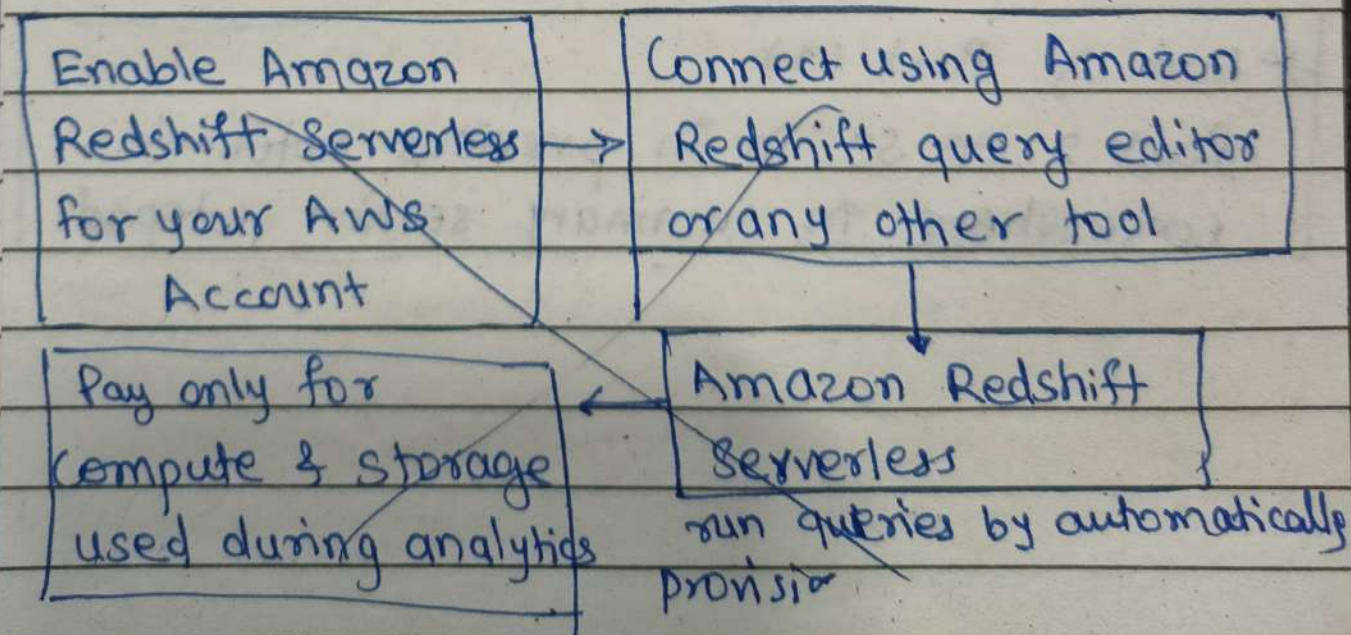 Enable Amazon
Redshift Serverless
for your AWS
Account
Connect using Amazon
Redshift query editor
or any other tool
Amazon Redshift
Serverless
run queries by automatically
provision
Pay only for
compute & storage
used during analytics